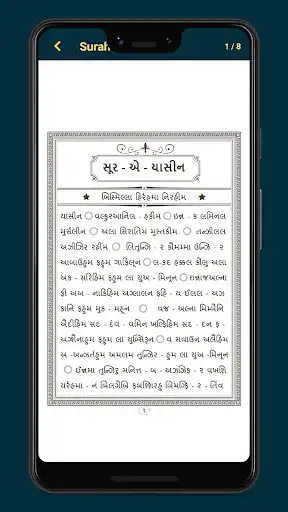 Surah
1 / 8
સૂર - એ - યાસીન
બિસ્મિલ્લા હિર્રહમા નિરહીમ
યાસીન ○ વલ્કુરઆનિલ - હકીમ ○ ઇન્ન - ક લમિનલ
મુર્સલીન ○ અલા સિરાતિમ મુસ્તકીમ ○ તન્ઝીલલ
અઝીઝિર રહીમ ○ લિતુન્ઝિ - ર કૌમમ્મા ઉન્ઝિ - ર
આબાઉહુમ ફહુમ ગાફિલૂન ○ લ-કદ હક્કલ કૌલુ અલા
અક - સરિહિમ ફહુમ લા યુઅ - મિનૂન ○ ઇન્નાજઅલ્ના
ફી અઅ - નાકિહિમ અગ્લાલન ફહિ - ય ઈલલ - અઝ
કાનિ ફહુમ મુક - મહૂન ○ વજ - અલ્ના મિમબૈનિ
ઐદીહિમ સદ - દંવ - વમિન ખલ્ફિહિમ સદ - દન ફ -
અગ્શૈનાહુમ ફહુમ લા યુબ્સિરૂન ○ વ સવાઉન અલૈહિમ
અ - અન્ઝર્તહુમ અમલમ તુન્ઝિર - હુમ લા યુઅ -મિનૂન
○ ઈન્નમા તુન્ઝિરુ મનિત્ત - બ - અઝઝિક - ર વખશિ
યર્રહમા - ન બિલગૈબિ ફબશ્શિરહુ બિમગ્ફિ - ર - તિંવ
૧